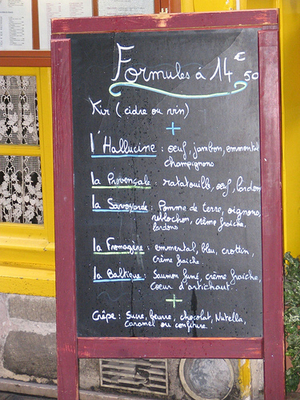 Formules à 14€50
Kir (cidre ou vin)
+
l'Hallucine : oeuf, jambon, emmental
champignons
la Provençale : ratatouille, oeuf, lardons
la Savoyarde : Pomme de terre, oignons,
reblochon, crème fraîche,
lardons
la Fromagère : emmental, bleu, crottin,
crème fraîche
la Baltique : Saumon fumé, crème fraîche,
coeur d'artichaut
+
Crêpe : Sucre, beurre, chocolat, Nutella,
caramel ou confiture